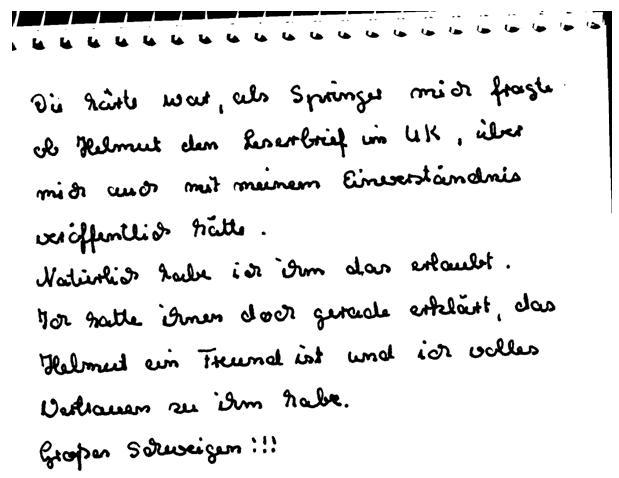 Die härte war, als Springer mich fragte
ob Helmut den Leserbrief im UK, über
mich auch mit meinem Einverständnis
veröffentlich hätte.
Natürlich habe ich ihm das erlaubt.
Ich hatte ihnen doch gerade erklärt, das
Helmut ein Freund ist und ich volles
Vertrauen zu ihm habe.
Großes Schweigen!!!